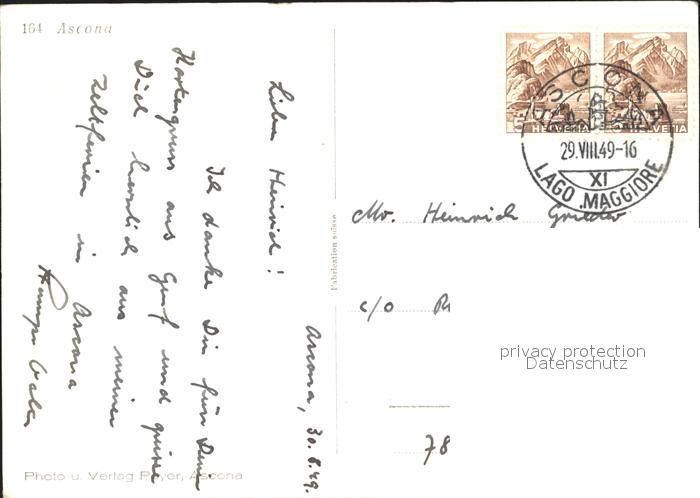 164 Ascona
Ascona, 30.8.49.
Lieber Heinrich!
Ich danke Dir für Deinen
Kartengruss aus Genf und grüsse
Dich herzlich aus meinen
Zeltferien in Ascona
Photo u. Verlag Payer, Ascona
Fabrication suisse
5 HELVETIA
HELVETIA
ASCONA
29.VIII.49-16
XI
LAGO MAGGIORE
Mr. Heinrich Grieder
c/o
78
privacy protection
Datenschutz